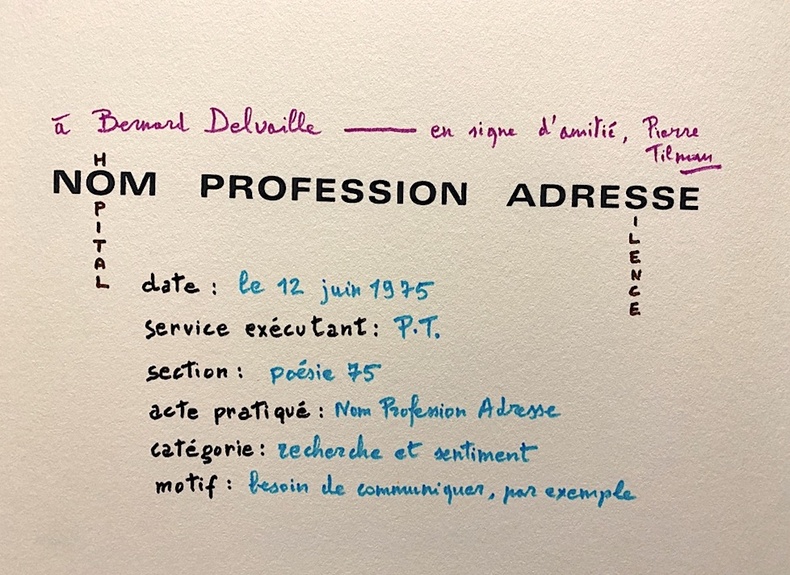 à Bernard Delvaille — en signe d'amitié, Pierre
Tilman
NOM PROFESSION ADRESSE
HOPITAL
SILENCE
date : le 12 juin 1975
service exécutant : P.T.
section : poésie 75
acte pratiqué : Nom Profession Adresse
catégorie : recherche et sentiment
motif : besoin de communiquer, par exemple